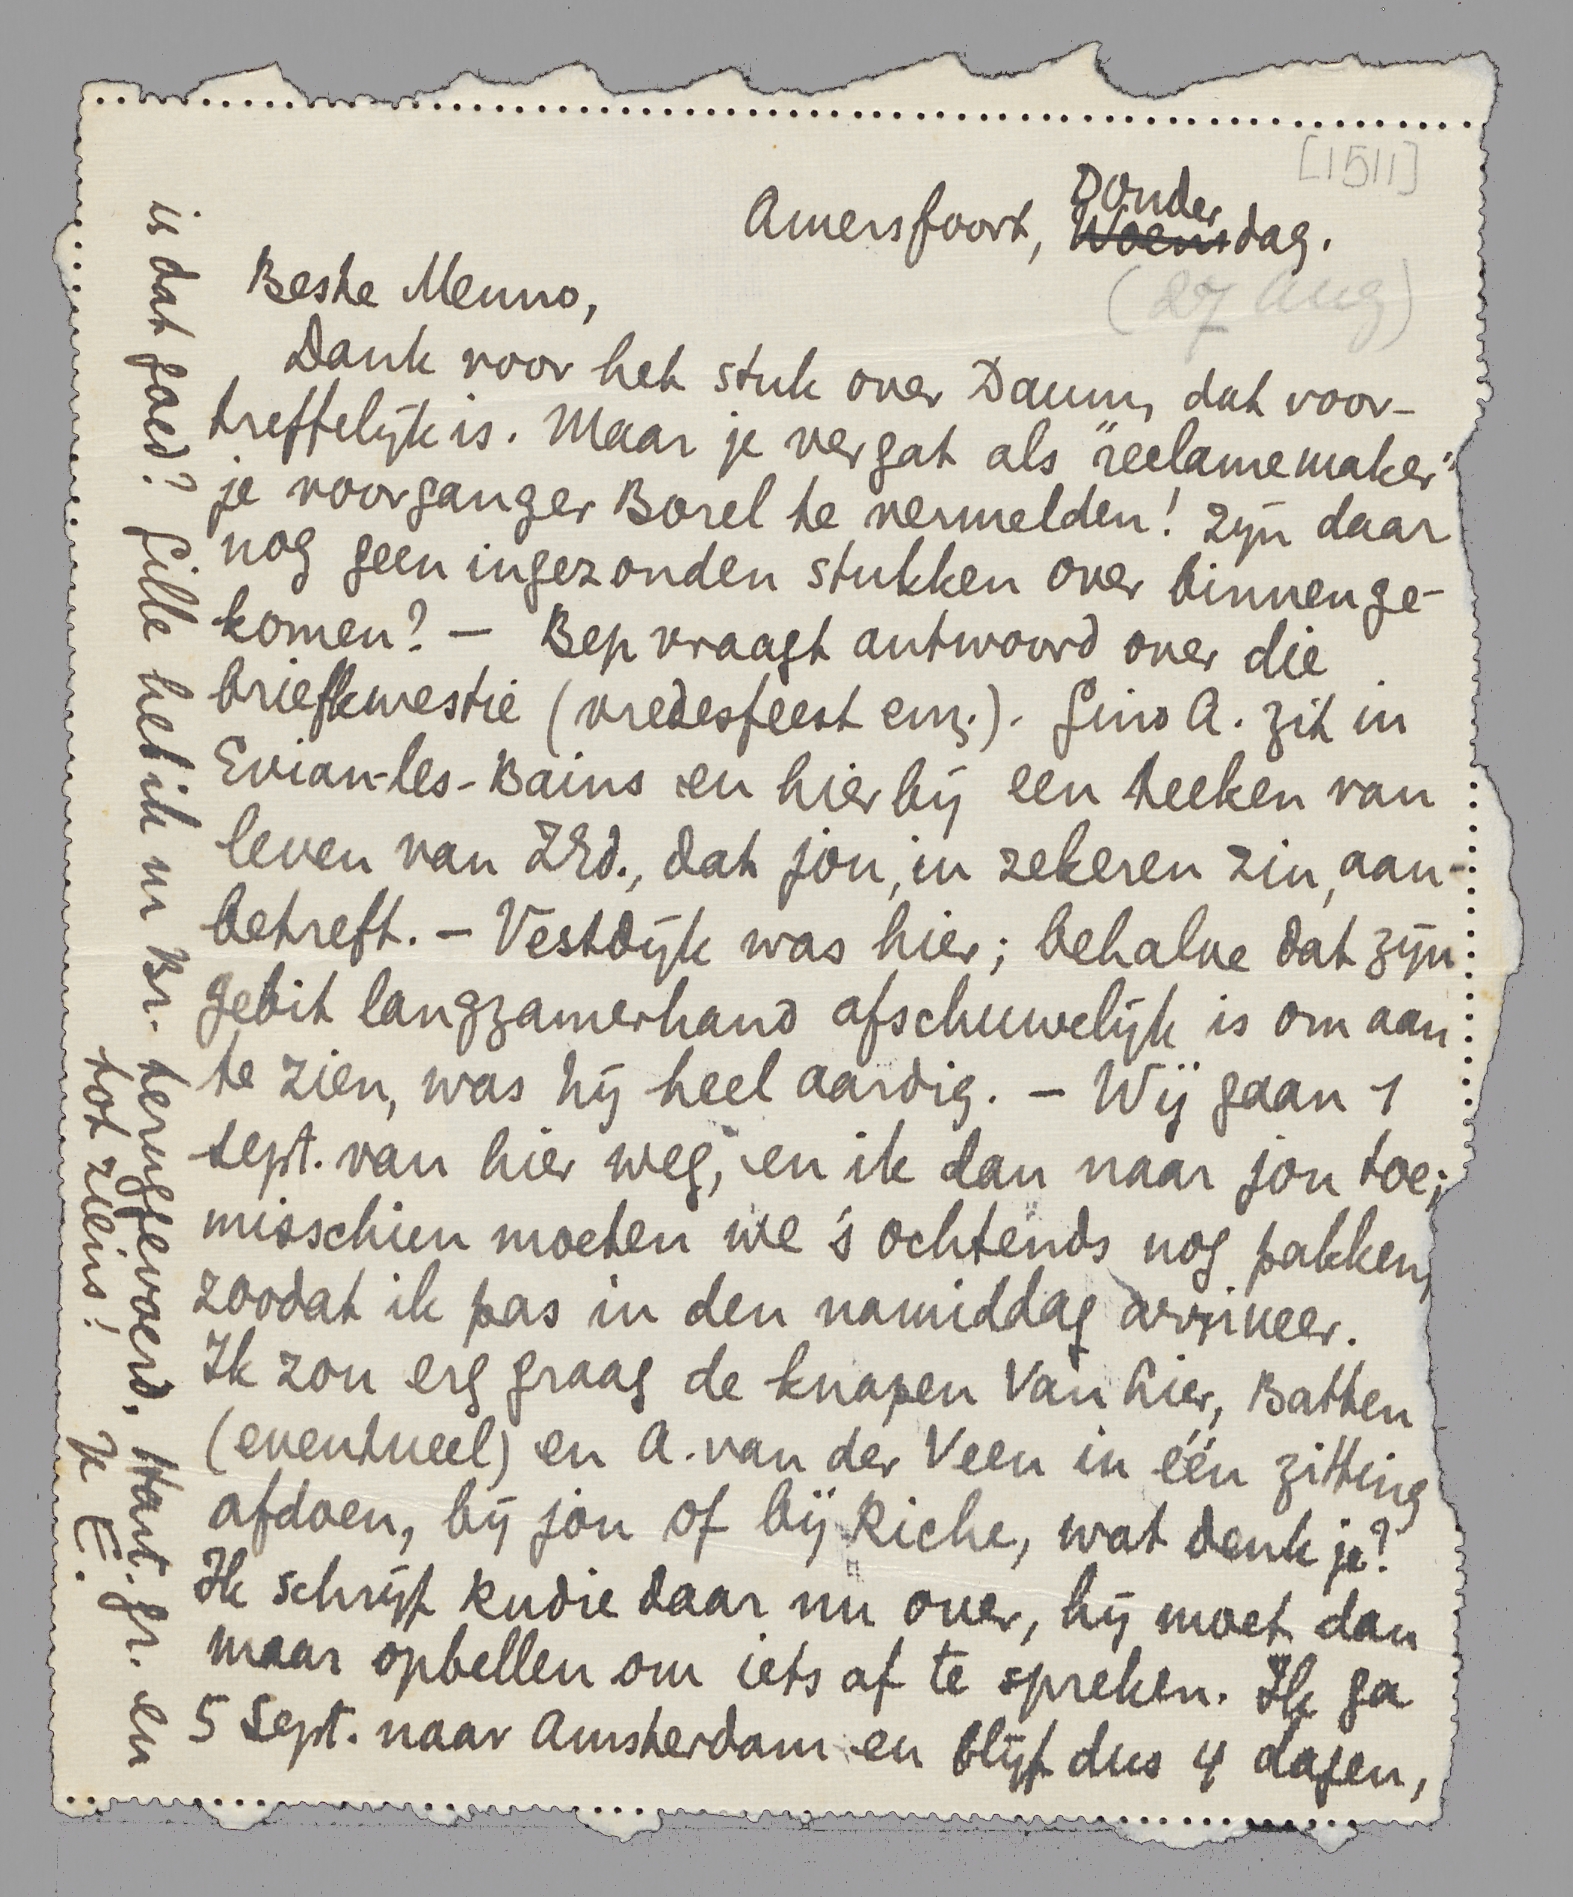 [1511]
Amersfoort, Donder
Woensdag.
(27 Aug)
Beste Menno,
Dank voor het stuk over Daum, dat voor-
treffelijk is. Maar je vergat als "reclamemaker"
je voorganger Borel te vermelden! Zijn daar
nog geen ingezonden stukken over binnenge-
komen? — Bep vraagt antwoord over die
briefkwestie (vredesfeest enz.). Gino A. zit in
Evian-les-Bains en hierbij een teeken van
leven van ZEd., dat jou, in zekeren zin, aan-
betreft. — Vestdijk was hier; behalve dat zijn
gebit langzamerhand afschuwelijk is om aan
te zien, was hij heel aardig. — Wij gaan 1
sept. van hier weg, en ik dan naar jou toe;
misschien moeten we 's ochtends nog pakken,
zoodat ik pas in den namiddag arriveer.
Ik zou erg graag de knapen Van Lier, Batten
(eventueel) en A. van der Veen in één zitting
afdoen, bij jou of bij Riche, wat denk je?
Ik schrijf Rudie daar nu over, hij moet dan
maar opbellen om iets af te spreken. Ik ga
5 Sept. naar Amsterdam en blijf dus 4 dagen,
is dat goed? Gille heb ik in Br. teruggevoerd, Hart. gr. en
tot ziens! Je E.